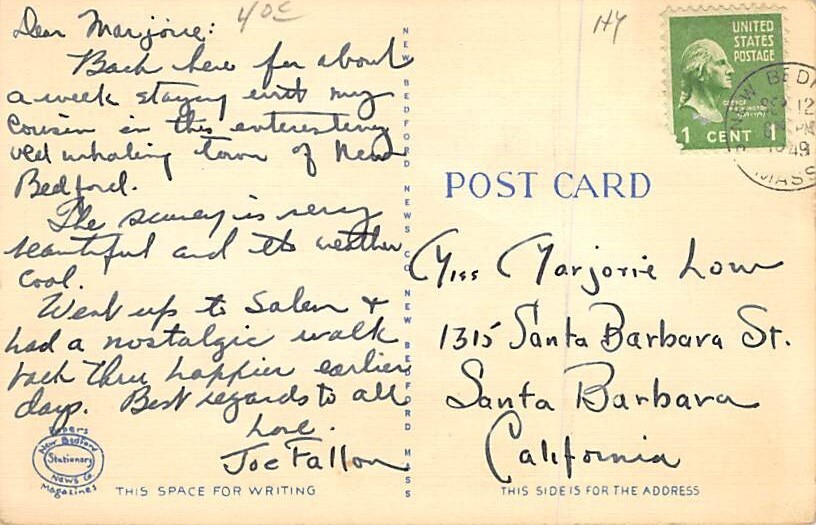 40¢
HY
Dear Marjorie:
Back here for about
a week staying with my
cousin in this interesting
old whaling town of New
Bedford.
The scenery is very
beautiful and the weather
cool.
Went up to Salem &
had a nostalgic walk
back thru happier earlier
days. Best regards to all
Love.
Joe Fallon
Papers
New Bedford
Stationary
News Co
Magazines
THIS SPACE FOR WRITING
NEW BEDFORD NEWS CO NEW BEDFORD MASS
UNITED
STATES
POSTAGE
1 CENT 1
NEW BEDF
12
PM
1949
MASS
POST CARD
Miss Marjorie Low
1315 Santa Barbara St.
Santa Barbara
California
THIS SIDE IS FOR THE ADDRESS